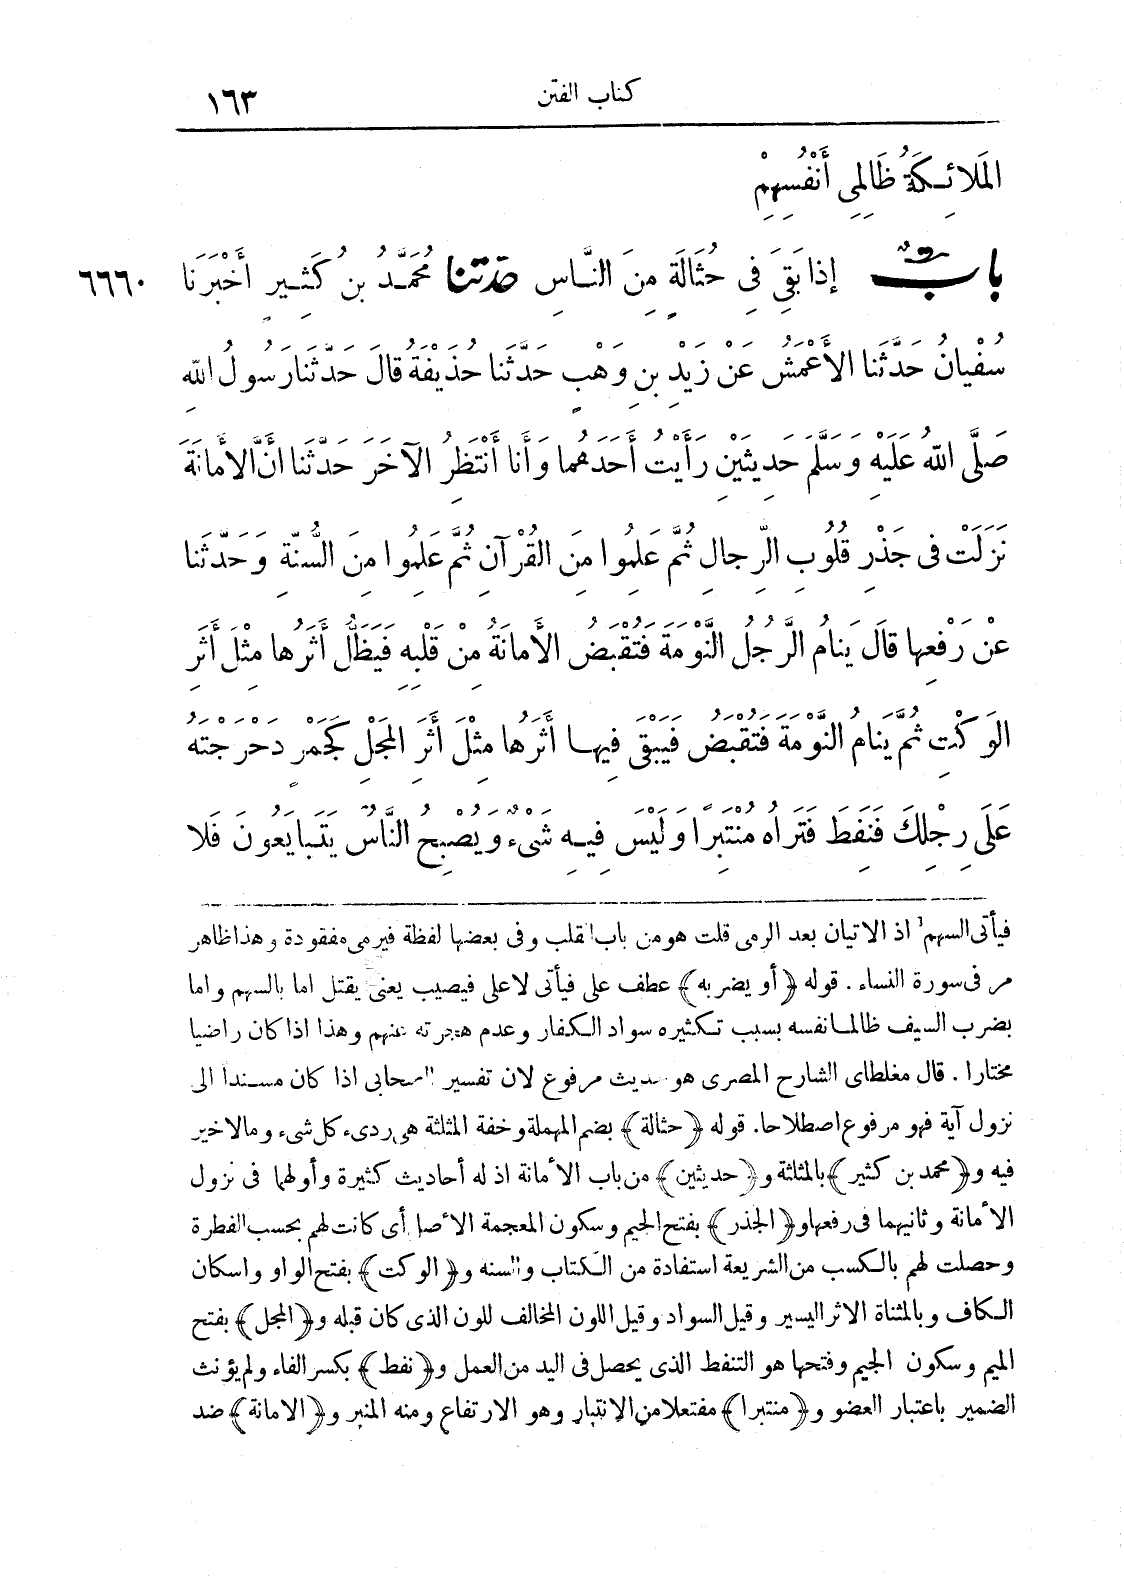 كتاب الفتن ١٦٣
المَلَائِكَةُ ظَالِمِى أَنْفُسِهِمْ
بابٌ إذا بَقِىَ فِى حُثَالَةٍ مِنَ النَّاسِ حَدَّثَنَا مُحَمَّدُ بنُ كَثِيرٍ أَخْبَرَنَا ٦٦٦٠
سُفْيانُ حَدَّثَنا الأَعْمَشُ عَنْ زَيْدِ بنِ وَهْبٍ حَدَّثَنا حُذَيْفَةُ قالَ حَدَّثَنا رَسولُ اللهِ
صَلَّى اللهُ عَلَيْهِ وَسَلَّمَ حَدِيثَيْنِ رَأَيْتُ أَحَدَهُما وَأَنا أَنْتَظِرُ الآخَرَ حَدَّثَنا أَنَّ الأَمانَةَ
نَزَلَتْ فى جَذْرِ قُلُوبِ الرِّجالِ ثُمَّ عَلِمُوا مِنَ القُرْآنِ ثُمَّ عَلِمُوا مِنَ السُّنَّةِ وَحَدَّثَنا
عَنْ رَفْعِها قالَ يَنامُ الرَّجُلُ النَّوْمَةَ فَتُقْبَضُ الأَمانَةُ مِنْ قَلْبِهِ فَيَظَلُّ أَثَرُها مِثْلَ أَثَرِ
الوَكْتِ ثُمَّ يَنامُ النَّوْمَةَ فَتُقْبَضُ فَيَبْقَى فِيها أَثَرُها مِثْلَ أَثَرِ المَجْلِ كَجَمْرٍ دَحْرَجْتَهُ
عَلَى رِجْلِكَ فَنَفِطَ فَتَراهُ مُنْتَبِرًا وَلَيْسَ فِيهِ شَىْءٌ وَيُصْبِحُ النَّاسُ يَتَبايَعُونَ فَلا
فيأتى السهم اذ الاتيان بعد الرمى قلت هو من باب القلب وفى بعضها لفظة فيرمى مفقودة وهذا ظاهر
مر فى سورة النساء . قوله ﴿أو يضربه﴾ عطف على فيأتى لا على فيصيب يعنى يقتل اما بالسهم واما
بضرب السيف ظالما نفسه بسبب تكثيره سواد الكفار وعدم هجرته عنهم وهذا اذا كان راضيا
مختارا . قال مغلطاى الشارح المصرى هو حديث مرفوع لان تفسير الصحابى اذا كان مسندا الى
نزول آية فهو مرفوع اصطلاحا. قوله ﴿حثالة﴾ بضم المهملة وخفة المثلثة هى ردىء كل شىء ومالاخير
فيه و﴿محمد بن كثير﴾ بالمثلثة و﴿حديثين﴾ من باب الأمانة اذ له أحاديث كثيرة وأولهما فى نزول
الأمانة وثانيهما فى رفعها و﴿الجذر﴾ بفتح الجيم وسكون المعجمة الأصل أى كانت لهم بحسب الفطرة
وحصلت لهم بالكسب من الشريعة استفادة من الكتاب والسنه و﴿الوكت﴾ بفتح الواو واسكان
الكاف وبالمثناة الاثر اليسير وقيل السواد وقيل اللون المخالف للون الذى كان قبله و﴿المجل﴾ بفتح
الميم وسكون الجيم وفتحها هو التنفط الذى يحصل فى اليد من العمل و﴿نفط﴾ بكسر الفاء ولم يؤنث
الضمير باعتبار العضو و﴿منتبرا﴾ مفتعلا من الانتبار وهو الارتفاع ومنه المنبر و﴿الامانة﴾ ضد